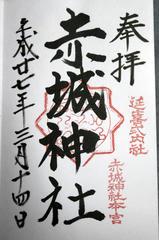 奉拝
延喜式内社
赤城神社
赤城神社本宮
平成廿七年三月十四日